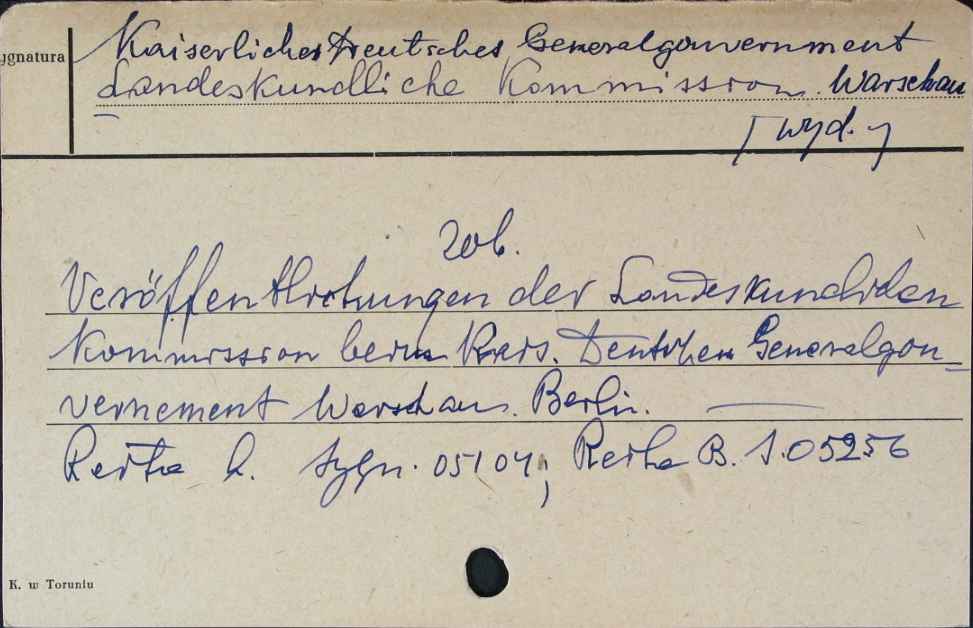 ygnatura
Kaiserliches Deutsches Generalgouvernment
Landeskundliche Kommission. Warschau
[wyd.]
zob.
Veröffentlichungen der Landeskundlichen
Kommission beim Kais. Deutschen Generalgou-
vernement Warschau. Berlin. —
Reihe A. sygn. 05104; Reihe B. S.05256
K. w Toruniu